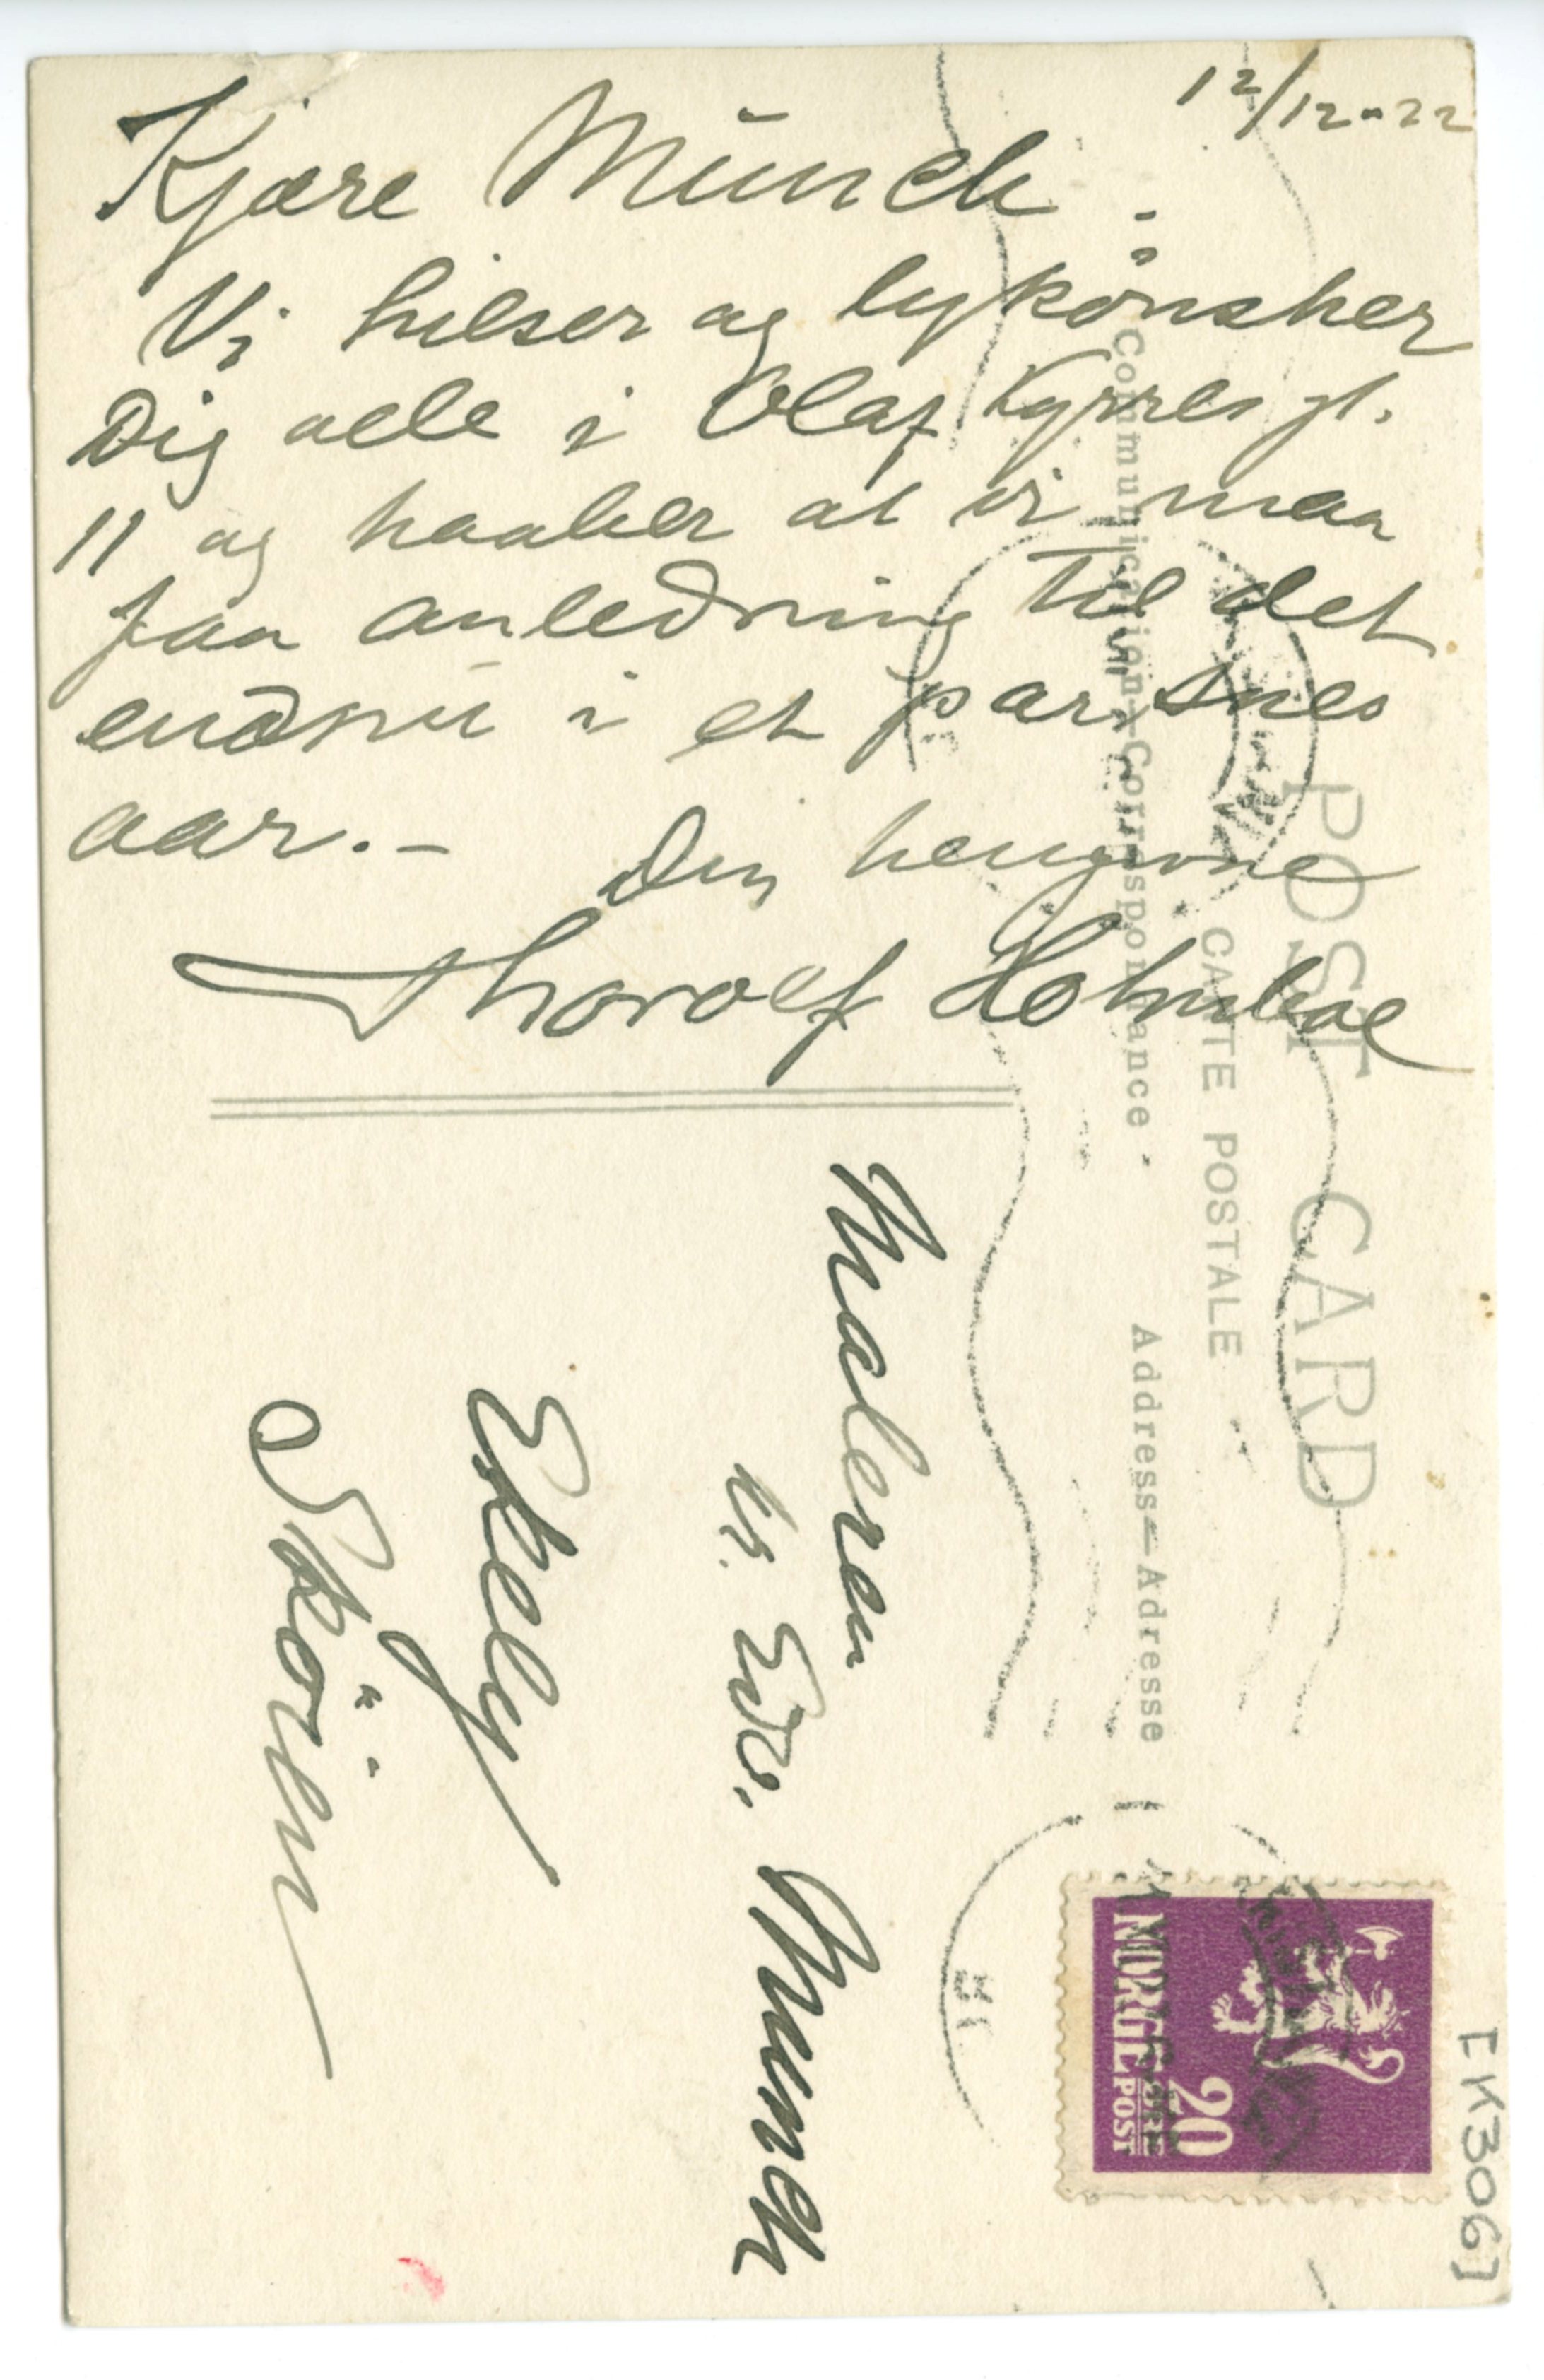 12/12-22
Kjære Münch.
Vi hilser og lykønsker
Dig alle i Olaf Kyrres gt.
11 og haaber at vi maa
faa anledning til det
endnu i et par snes
aar.-
Din hengivne
Thorolf Holmboe
POST CARD
CARTE POSTALE
Communication—Correspondance
Address—Adresse
Maleren
hr. Edv. Munch
Ekely
Skøien
NORGE
20
ØRE
POST
[K306]